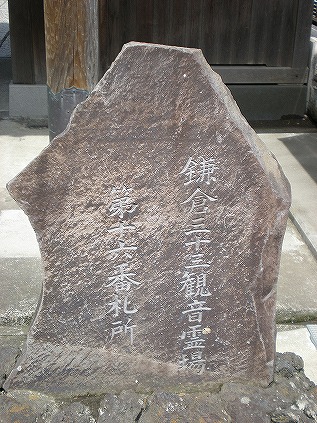 鎌倉三十三観音霊場
第十六番札所